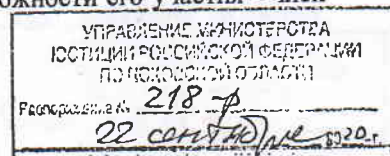 УПРАВЛЕНИЕ МИНИСТЕРСТВА
ЮСТИЦИИ РОССИЙСКОЙ ФЕДЕРАЦИИ
ПО ПСКОВСКОЙ ОБЛАСТИ
Распоряжение № 218-р
22 сентября 2020 г.